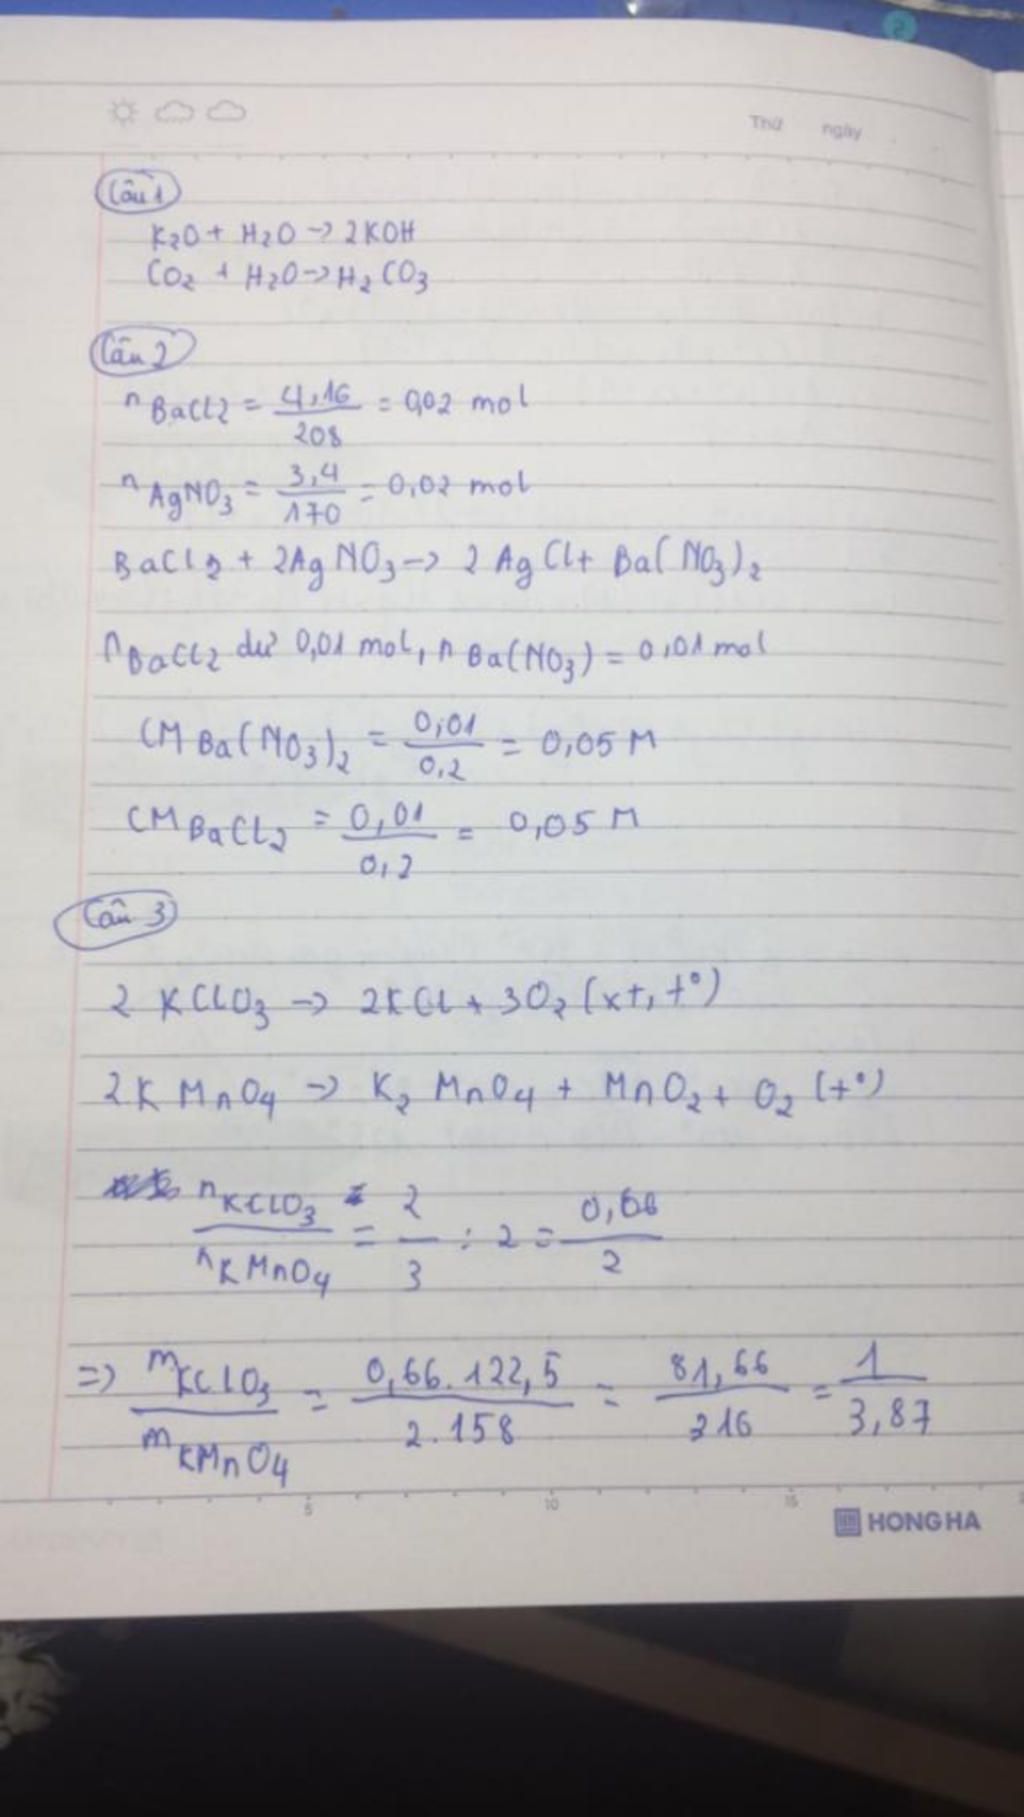 Thứ ngày
Câu 1
K2O + H2O -> 2KOH
CO2 + H2O -> H2CO3
Câu 2
nBaCl2 = 4,16/208 = 0,02 mol
nAgNO3 = 3,4/170 = 0,02 mol
BaCl2 + 2AgNO3 -> 2AgCl + Ba(NO3)2
nBaCl2 dư 0,01 mol, nBa(NO3) = 0,01 mol
CM Ba(NO3)2 = 0,01/0,2 = 0,05 M
CM BaCl2 = 0,01/0,2 = 0,05 M
Câu 3
2KClO3 -> 2KCl + 3O2 (xt, t°)
2KMnO4 -> K2MnO4 + MnO2 + O2 (t°)
nKClO3/nKMnO4 = 2/3 : 2 = 0,66/2
=> mKClO3/mKMnO4 = 0,66.122,5/2.158 = 81,66/316 = 1/3,87
5 10 15
HONG HA